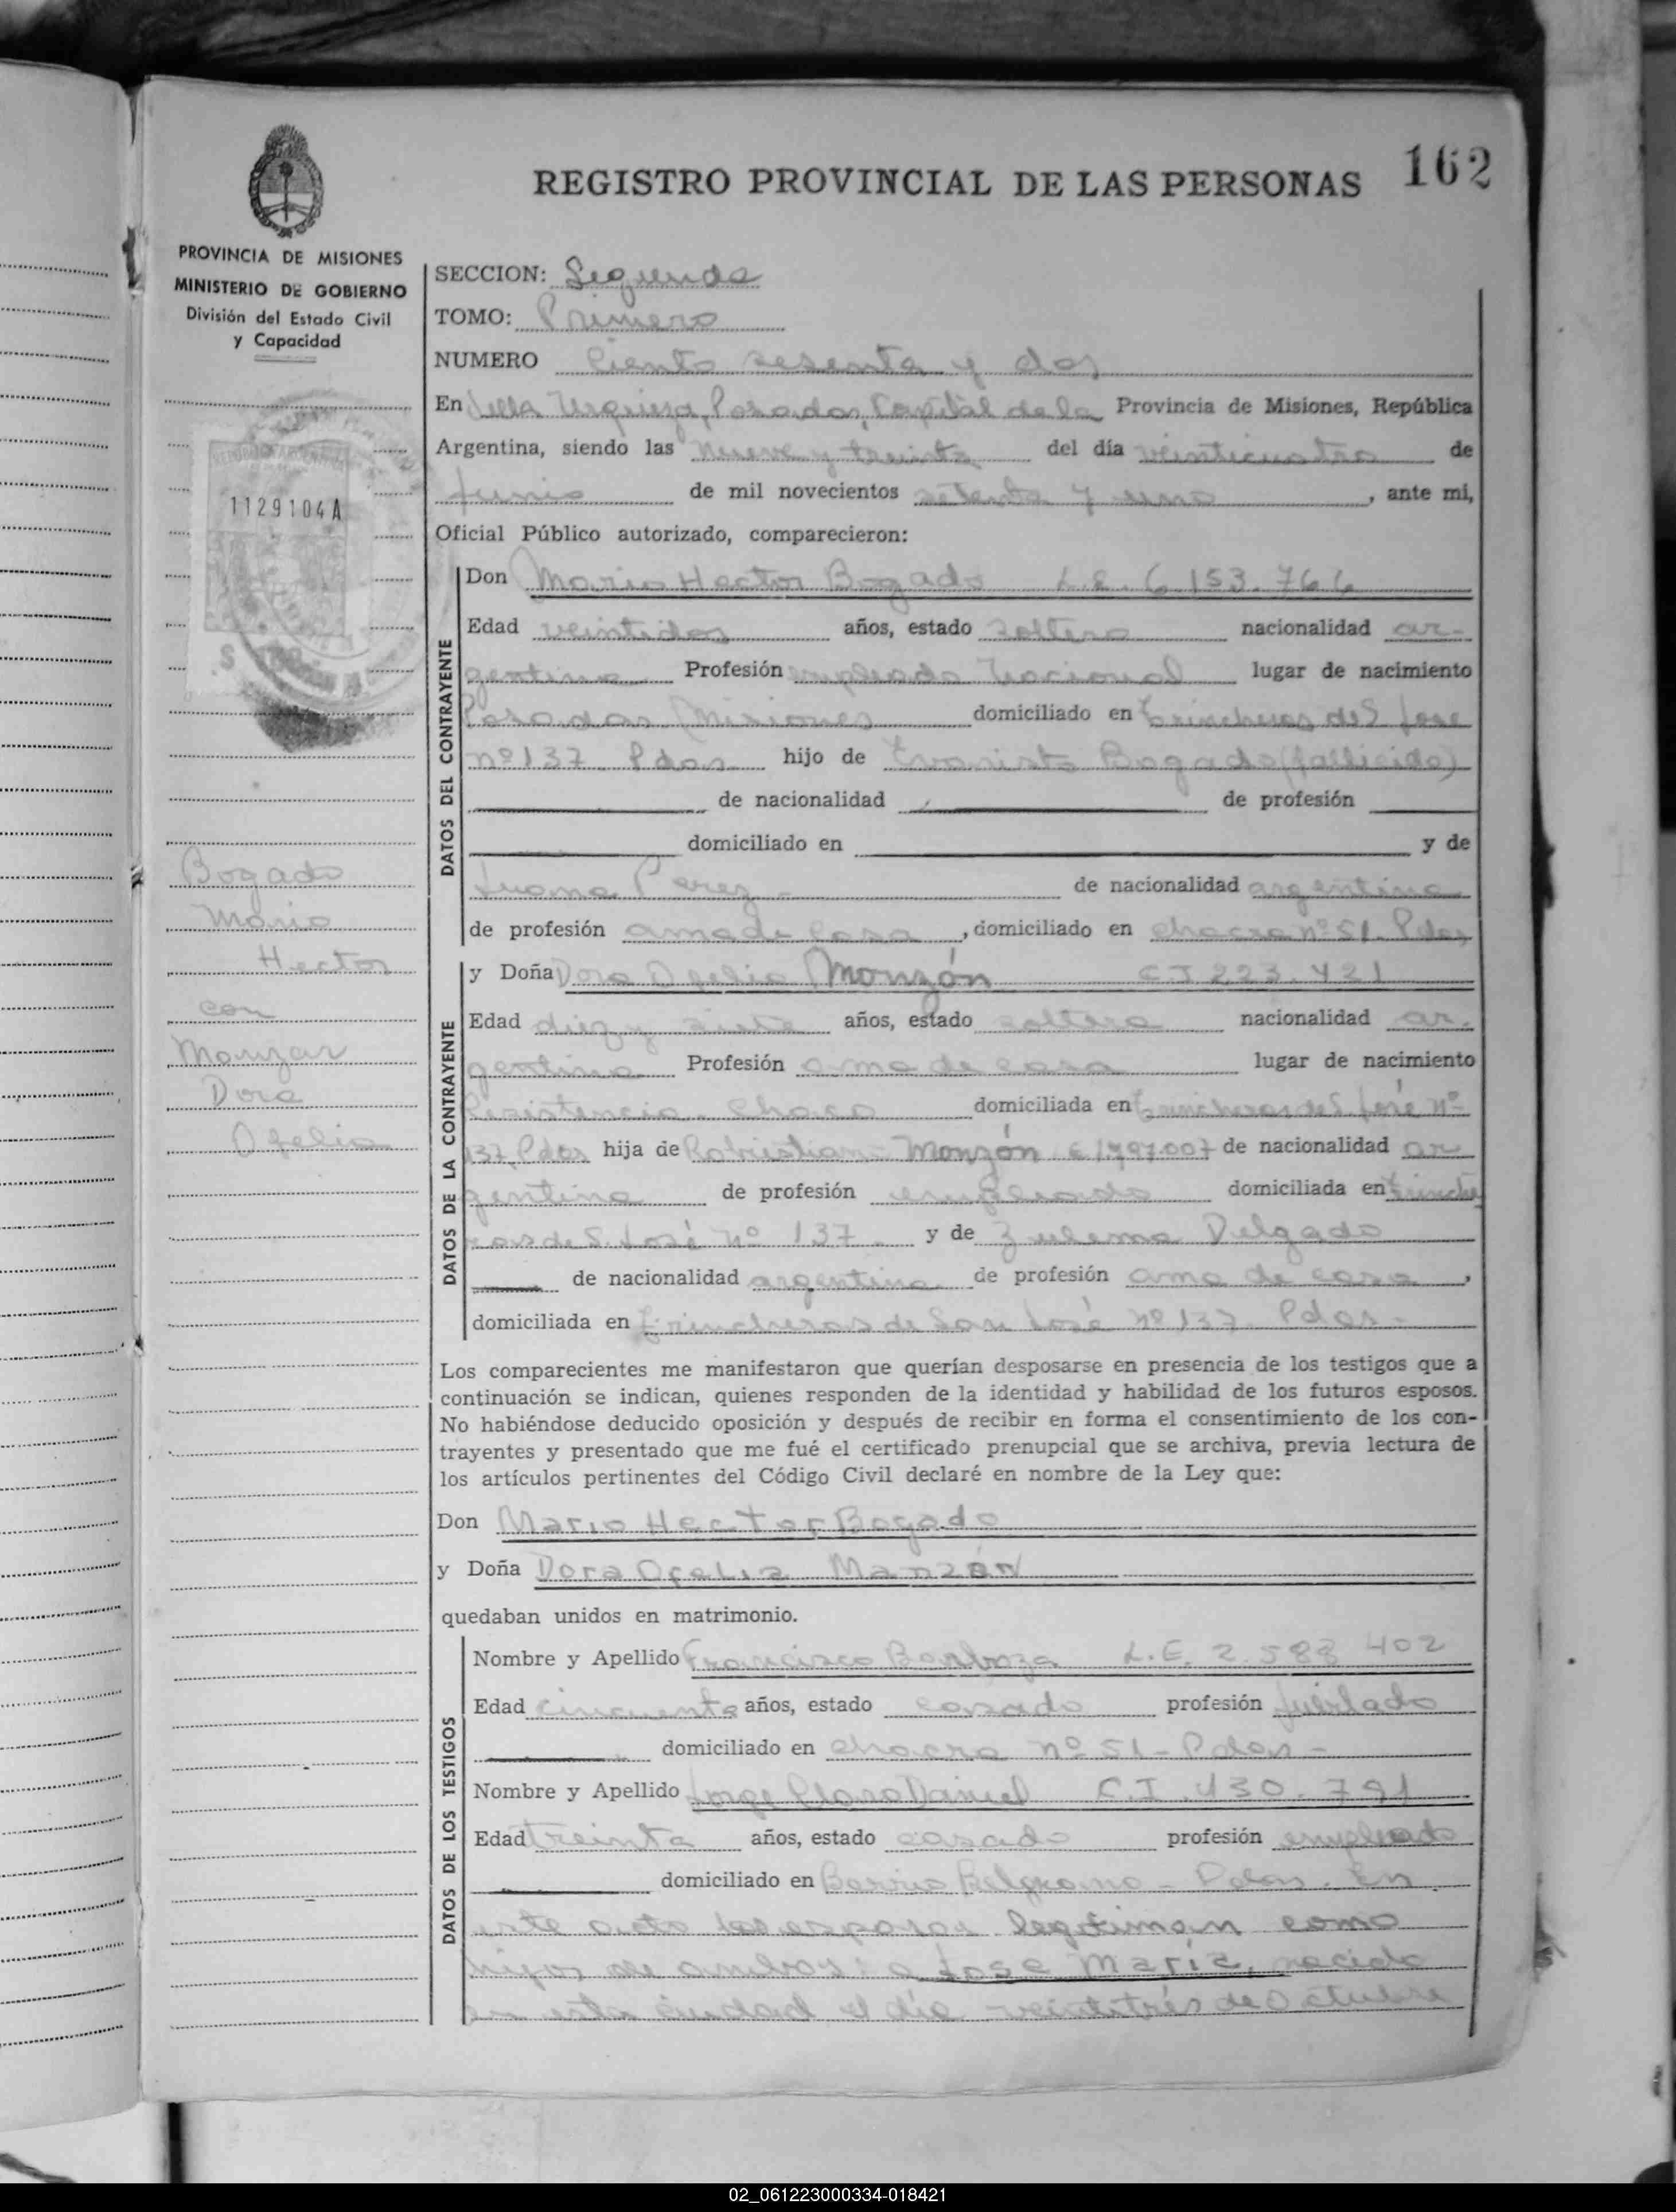 REGISTRO PROVINCIAL DE LAS PERSONAS 162
PROVINCIA DE MISIONES
MINISTERIO DE GOBIERNO
División del Estado Civil
y Capacidad
1129104A
Bogado
Mario
Hector
con
Monzon
Dora
Ofelia
SECCION: Segunda
TOMO: Primero
NUMERO Ciento sesenta y dos
En Villa Urquiza, Posadas, Capital de la Provincia de Misiones, República
Argentina, siendo las nueve y treinta del día veinticuatro de
Junio de mil novecientos setenta y uno, ante mi,
Oficial Público autorizado, comparecieron:
DATOS DEL CONTRAYENTE
Don Mario Hector Bogado L.E. 6.153.766
Edad veintidos años, estado soltero nacionalidad ar-
gentina Profesión empleado Nacional lugar de nacimiento
Posadas Misiones domiciliado en Trincheras de S. Jose
nº 137 Pdas hijo de Evaristo Bogado (fallicido)
de nacionalidad de profesión
domiciliado en y de
Juana Perez - de nacionalidad argentina
de profesión ama de casa, domiciliado en chacra nº 51. Pdas
DATOS DE LA CONTRAYENTE
y Doña Dora Ofelia Monzón C I 223.421
Edad diez y siete años, estado soltera nacionalidad ar-
gentina Profesión ama de casa lugar de nacimiento
Resistencia - Chaco domiciliada en Trincheras de S. José Nº
137. Pdas hija de Monzón de nacionalidad ar
gentina de profesión empleado domiciliada en Trinche
ras de S. José Nº 137. y de Zulema Delgado
de nacionalidad argentina de profesión ama de casa,
domiciliada en Trincheras de San José nº 137. Pdas.
Los comparecientes me manifestaron que querían desposarse en presencia de los testigos que a
continuación se indican, quienes responden de la identidad y habilidad de los futuros esposos.
No habiéndose deducido oposición y después de recibir en forma el consentimiento de los con-
trayentes y presentado que me fué el certificado prenupcial que se archiva, previa lectura de
los artículos pertinentes del Código Civil declaré en nombre de la Ley que:
Don Mario Hector Bogado
y Doña Dora Ofelia Monzón
quedaban unidos en matrimonio.
DATOS DE LOS TESTIGOS
Nombre y Apellido Francisco Barboza L.E. 2.588 402
Edad cincuenta años, estado casado profesión jubilado
domiciliado en chacra nº 51 - Pdas -
Nombre y Apellido Jorge Daniel C.I. 130.791
Edad treinta años, estado casado profesión empleado
domiciliado en Barrio Belgrano - Pdas. En
este acto los esposos legitiman como
hijos de ambos: a Jose María, nacido
en esta ciudad el día veintitrés de Octubre
02_061223000334-018421